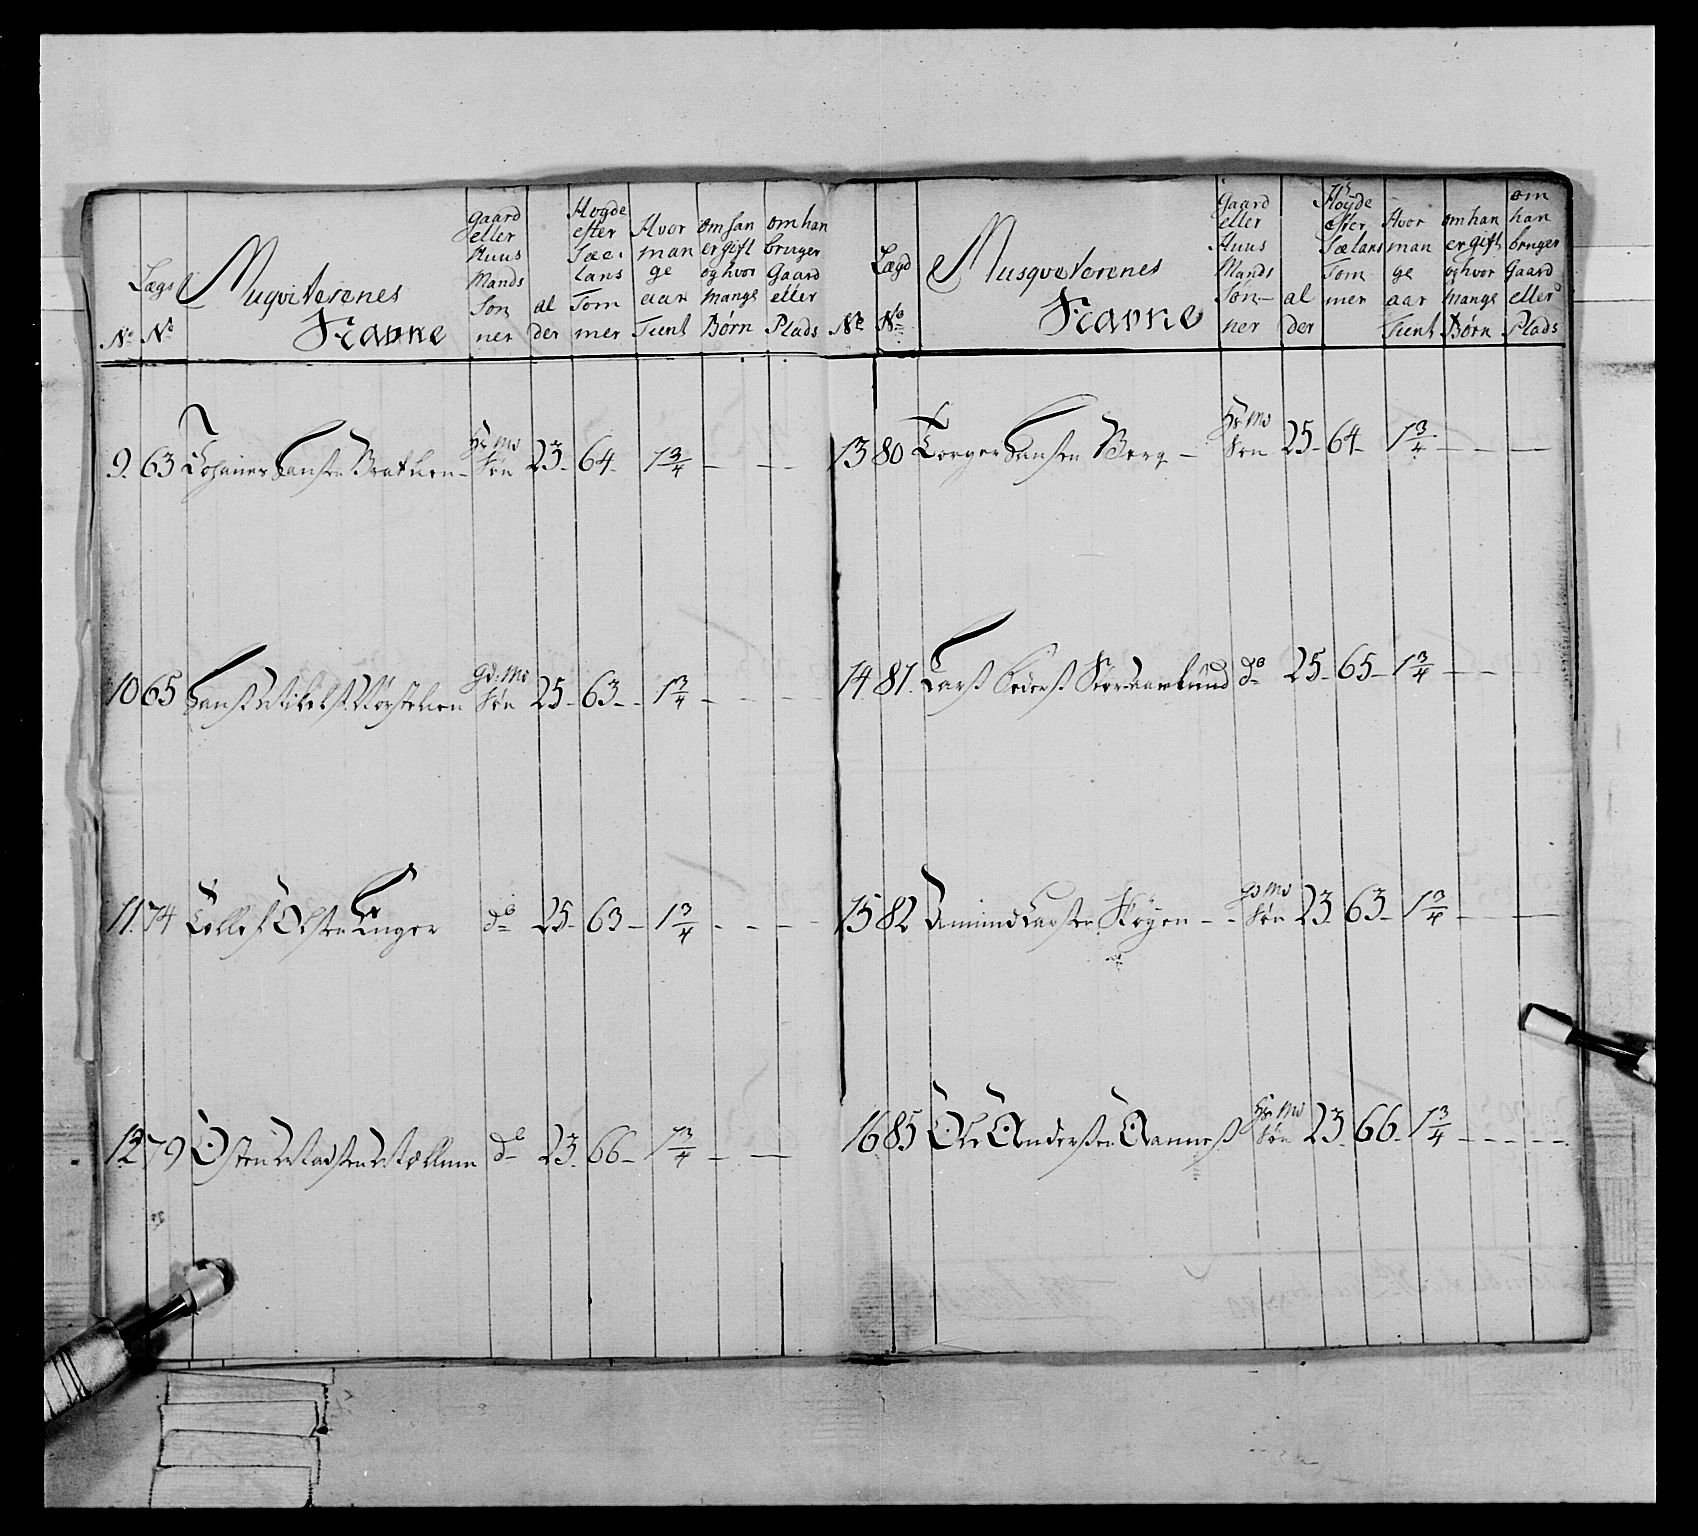 No
Lægd No
Muqveterenes Fravne
gaard eller Huus Mands Søn ner
al der
Høyde efter Sæe lans Tom mer
Hvor man ge aar Tient
om han er gift og hvor mange Børn
om han bruger Gaard eller Plads
9. 63 Johannes Hansen Brathen - Hs Ms Søn 23 - 64 1 3/4 - - -
10 65 Hans Mikelsß Nørsteken gd: Ms Søn 25 - 63 - 1 3/4 - - -
11. 74 Tollef Olsen Unger do 25 - 63 - 1 3/4 - - -
12 79 Østen Madsen Mællum do 23. 66 - 1 3/4 - -
No
Lægd No
Musqveterenes Fravne
Gaard eller Huus Mands Søn- ner
al der
Høyde efter Sælans Tom mer
Hvor man ge aar Tient
om han er gift og hvor mange Børn
om han bruger Gaard eller Plads
13 80 Torger Hansen Berg - Hs Ms Søn 25 - 64 - 1 3/4 - - -
14 81. Larß Pederß do 25 - 65 - 1 3/4 - - -
15 82 Amund Larsen Skøyen - - gd Ms Søn 23 63 - 1 3/4 - - -
16 85 Ole Andersen Aanneß Hs Ms Søn 23. 66 - 1 3/4 - - - - -